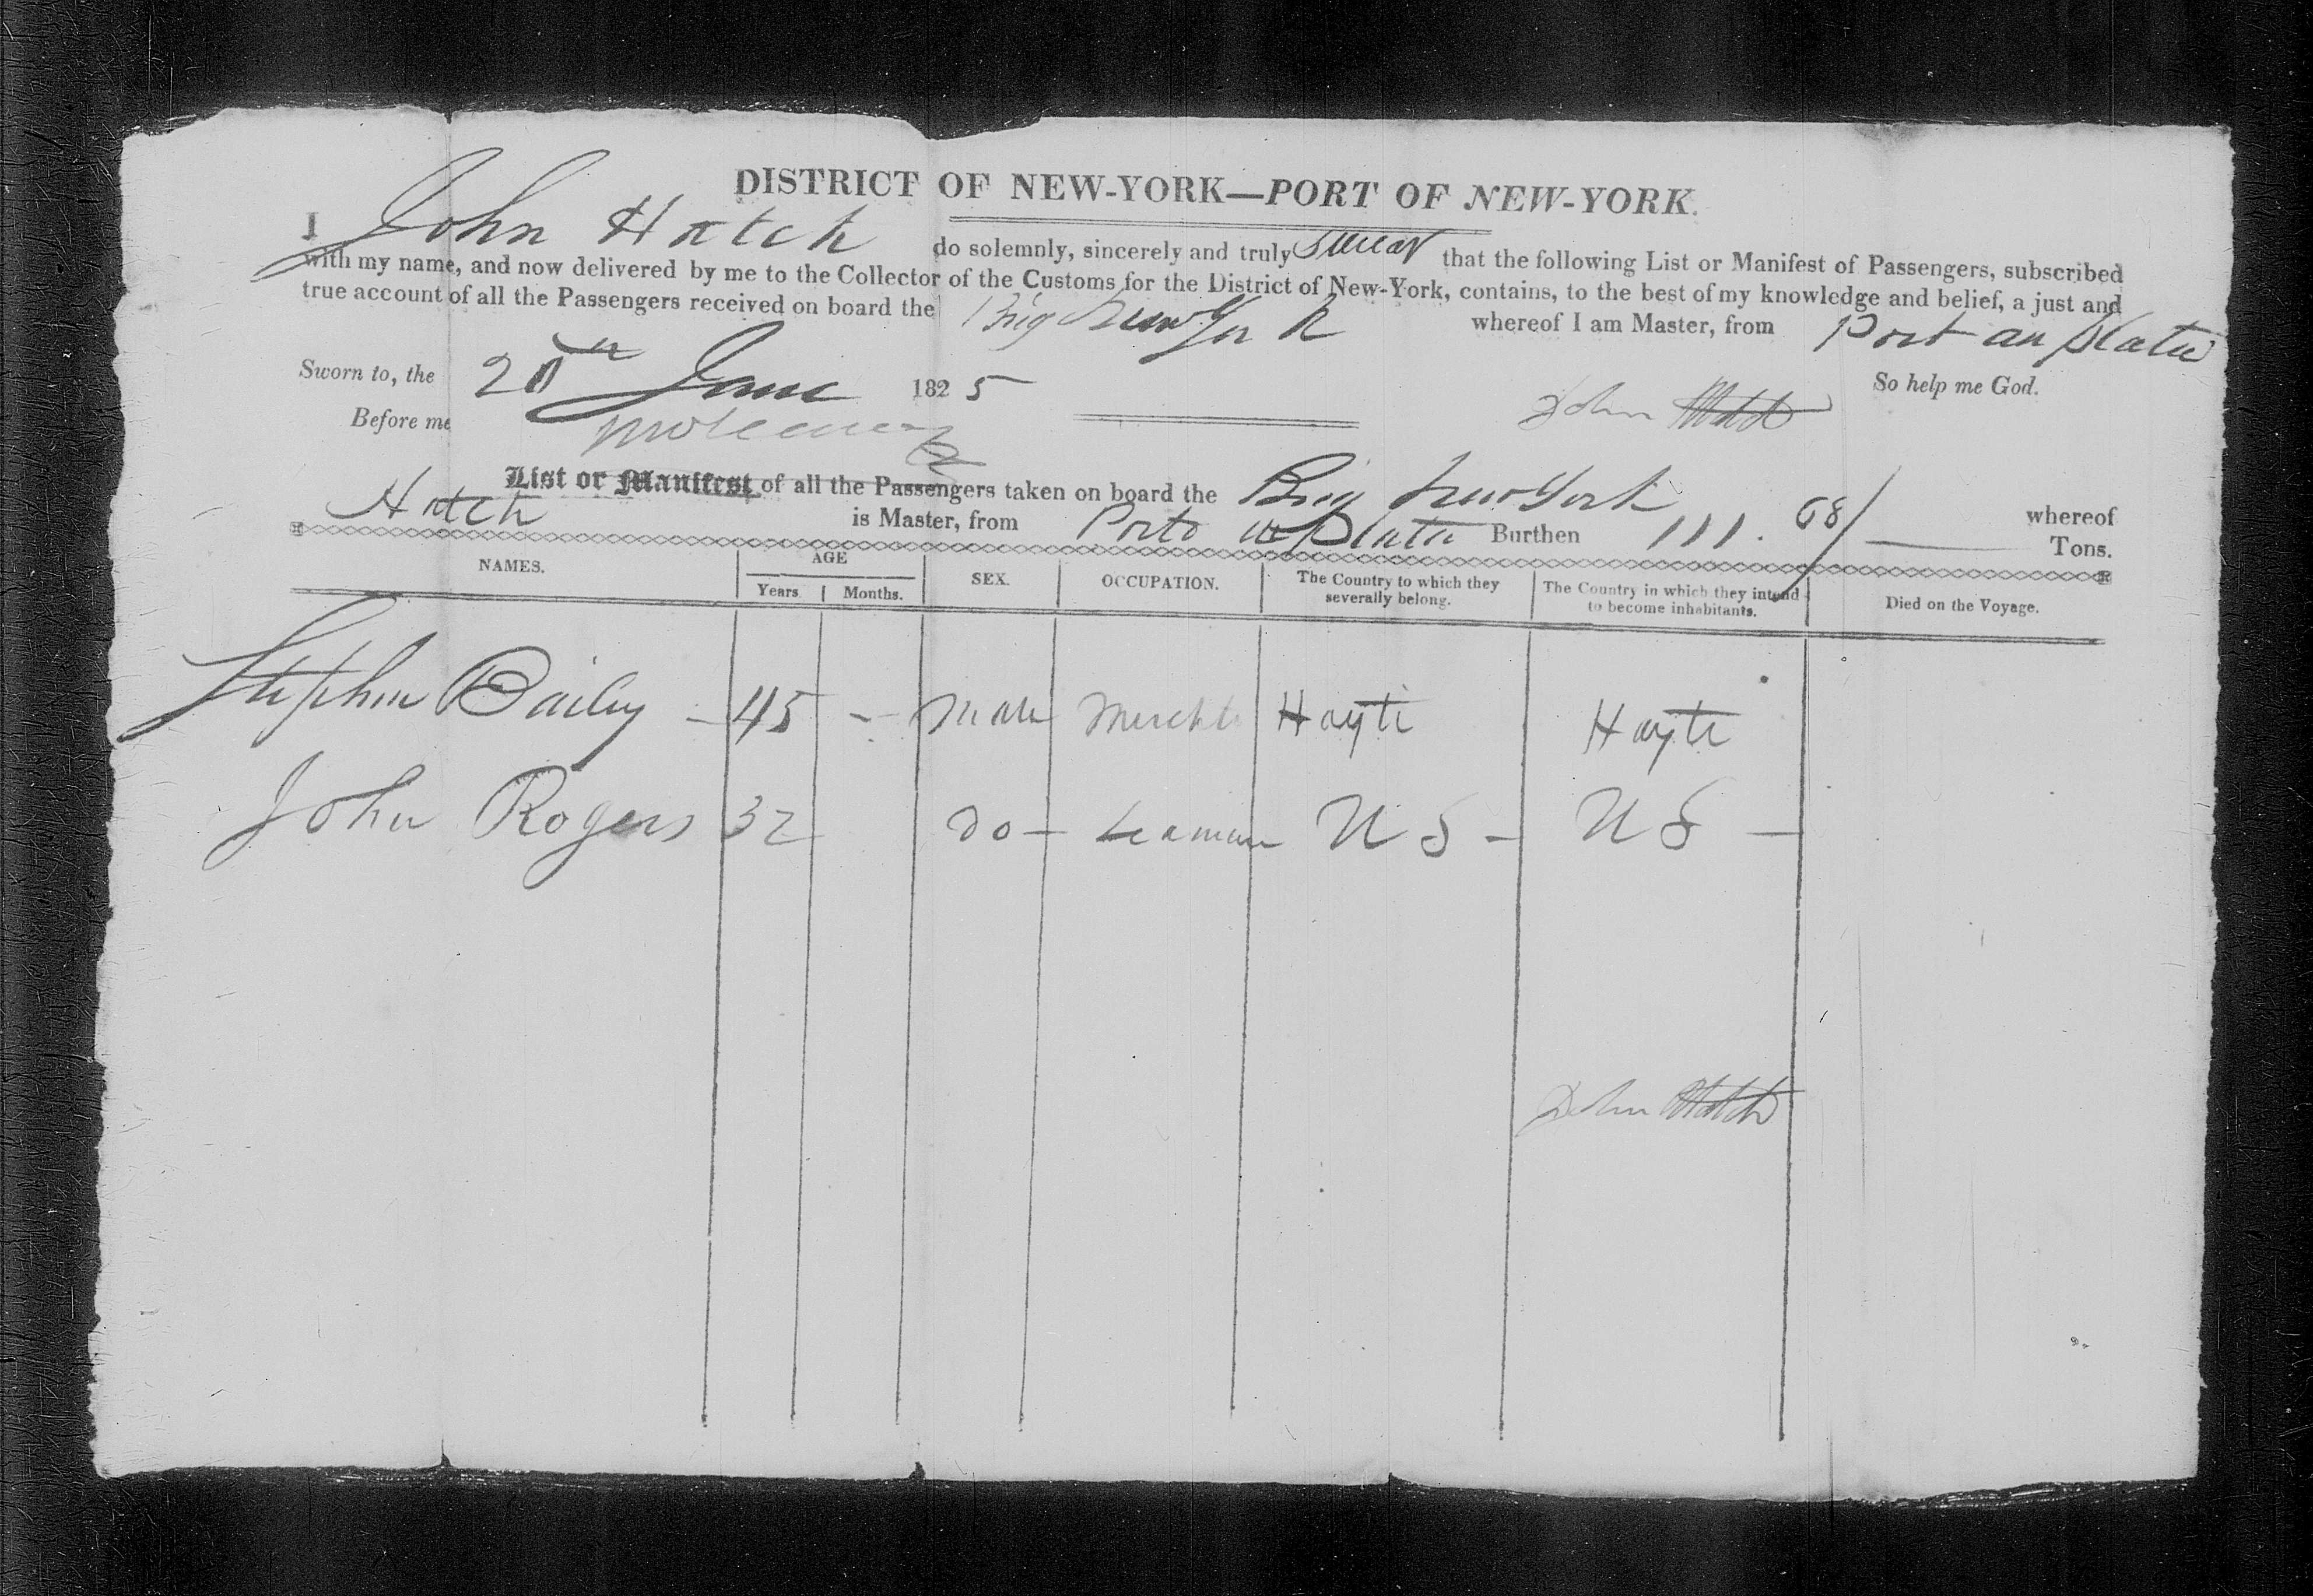 DISTRICT OF NEW-YORK—PORT OF NEW-YORK.
I John Hatch do solemnly, sincerely and truly swear that the following List or Manifest of Passengers, subscribed
with my name, and now delivered by me to the Collector of the Customs for the District of New-York, contains, to the best of my knowledge and belief, a just and
true account of all the Passengers received on board the Brig New York whereof I am Master, from Port au Platte
Sworn to, the 20th June 1825 So help me God.
Before me John Hatch
List or Manifest of all the Passengers taken on board the Brig New York whereof
Hatch is Master, from Porto Platte Burthen 111. 68/ Tons.
NAMES. AGE Years Months. SEX. OCCUPATION. The Country to which they severally belong. The Country in which they intend to become inhabitants. Died on the Voyage.
Stephen Bailey - 45 - Male Mercht Hayti Hayti
John Rogers 32 Do - Seaman U S - U S -
John Hatch